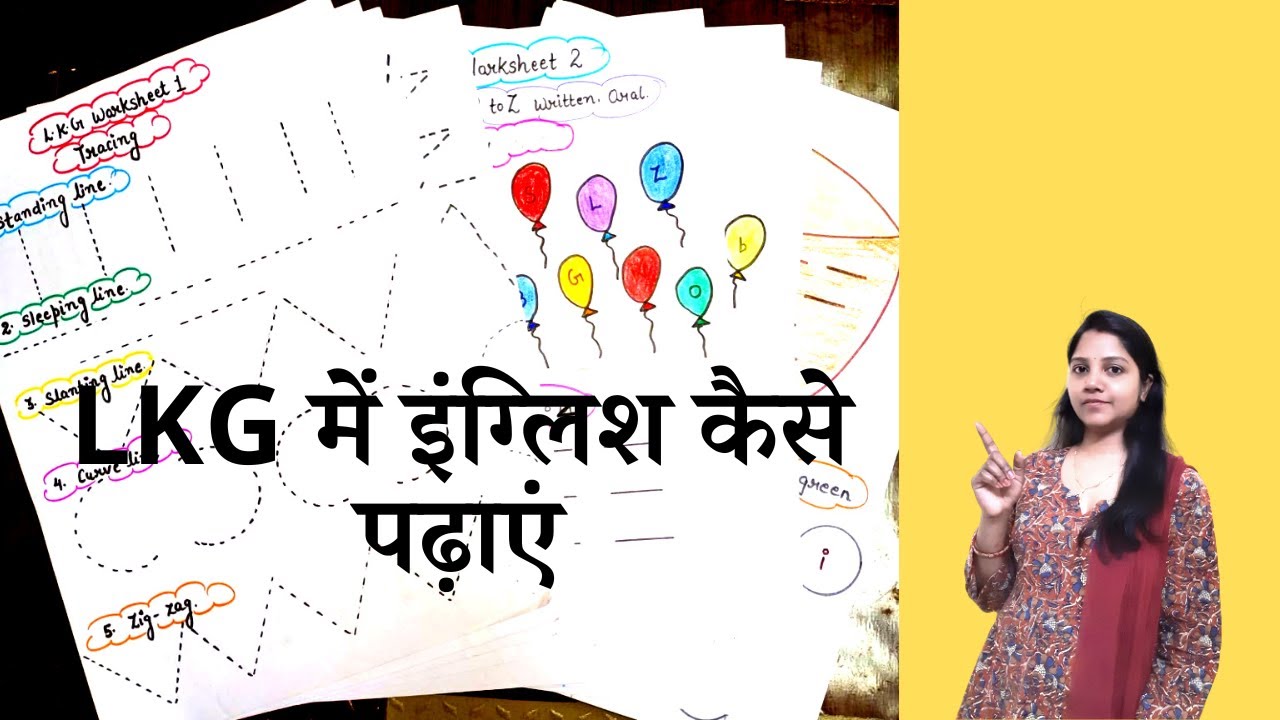 L.K.G Warksheet 1
Tracing
Standing line.
2. Sleeping line.
3. Slanting line.
4. Curve
5. Zig-zag.
Warksheet 2
to Z Written. Oral.
S
L
Z
b
G
O
green
i
LKG में इंग्लिश कैसे
पढ़ाएं